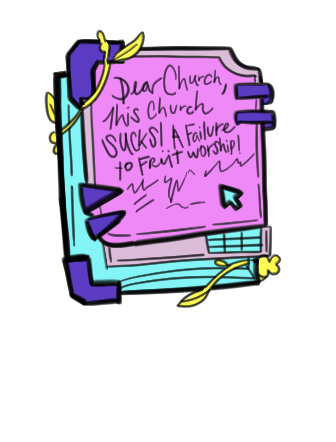 Dear Church,
This Church
SUCKS! A Failure
to Fruit worship!